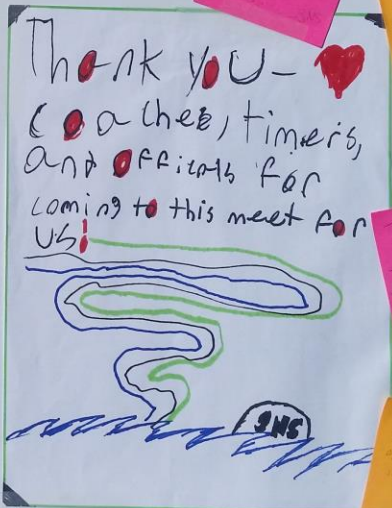 Thank you—
Coaches, timers,
and officials for
coming to this meet for
us!
SNS
SNS